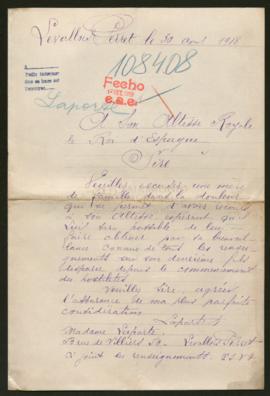 Levallois Perret le 30 avril 1918
108408
Fecho
e.a.e.
Laporte
A Son Altesse Royale
le Roi d'Espagne
Sire
Veuillez excuser une mère
de famille dans la douleur
qui se permet d'avoir recours
à son Altesse, espérant qu'il
lui sera possible de lui
faire obtenir par sa bienveil
lance connue de tous les rensei
gnements sur son deuxième fils
disparu depuis le commencement
des hostilités
Veuillez Sire, agréer
l'assurance de ma plus parfaite
considération.
Laporte
Madame Laporte
rue de Villiers Levallois Perret
joint les renseignements